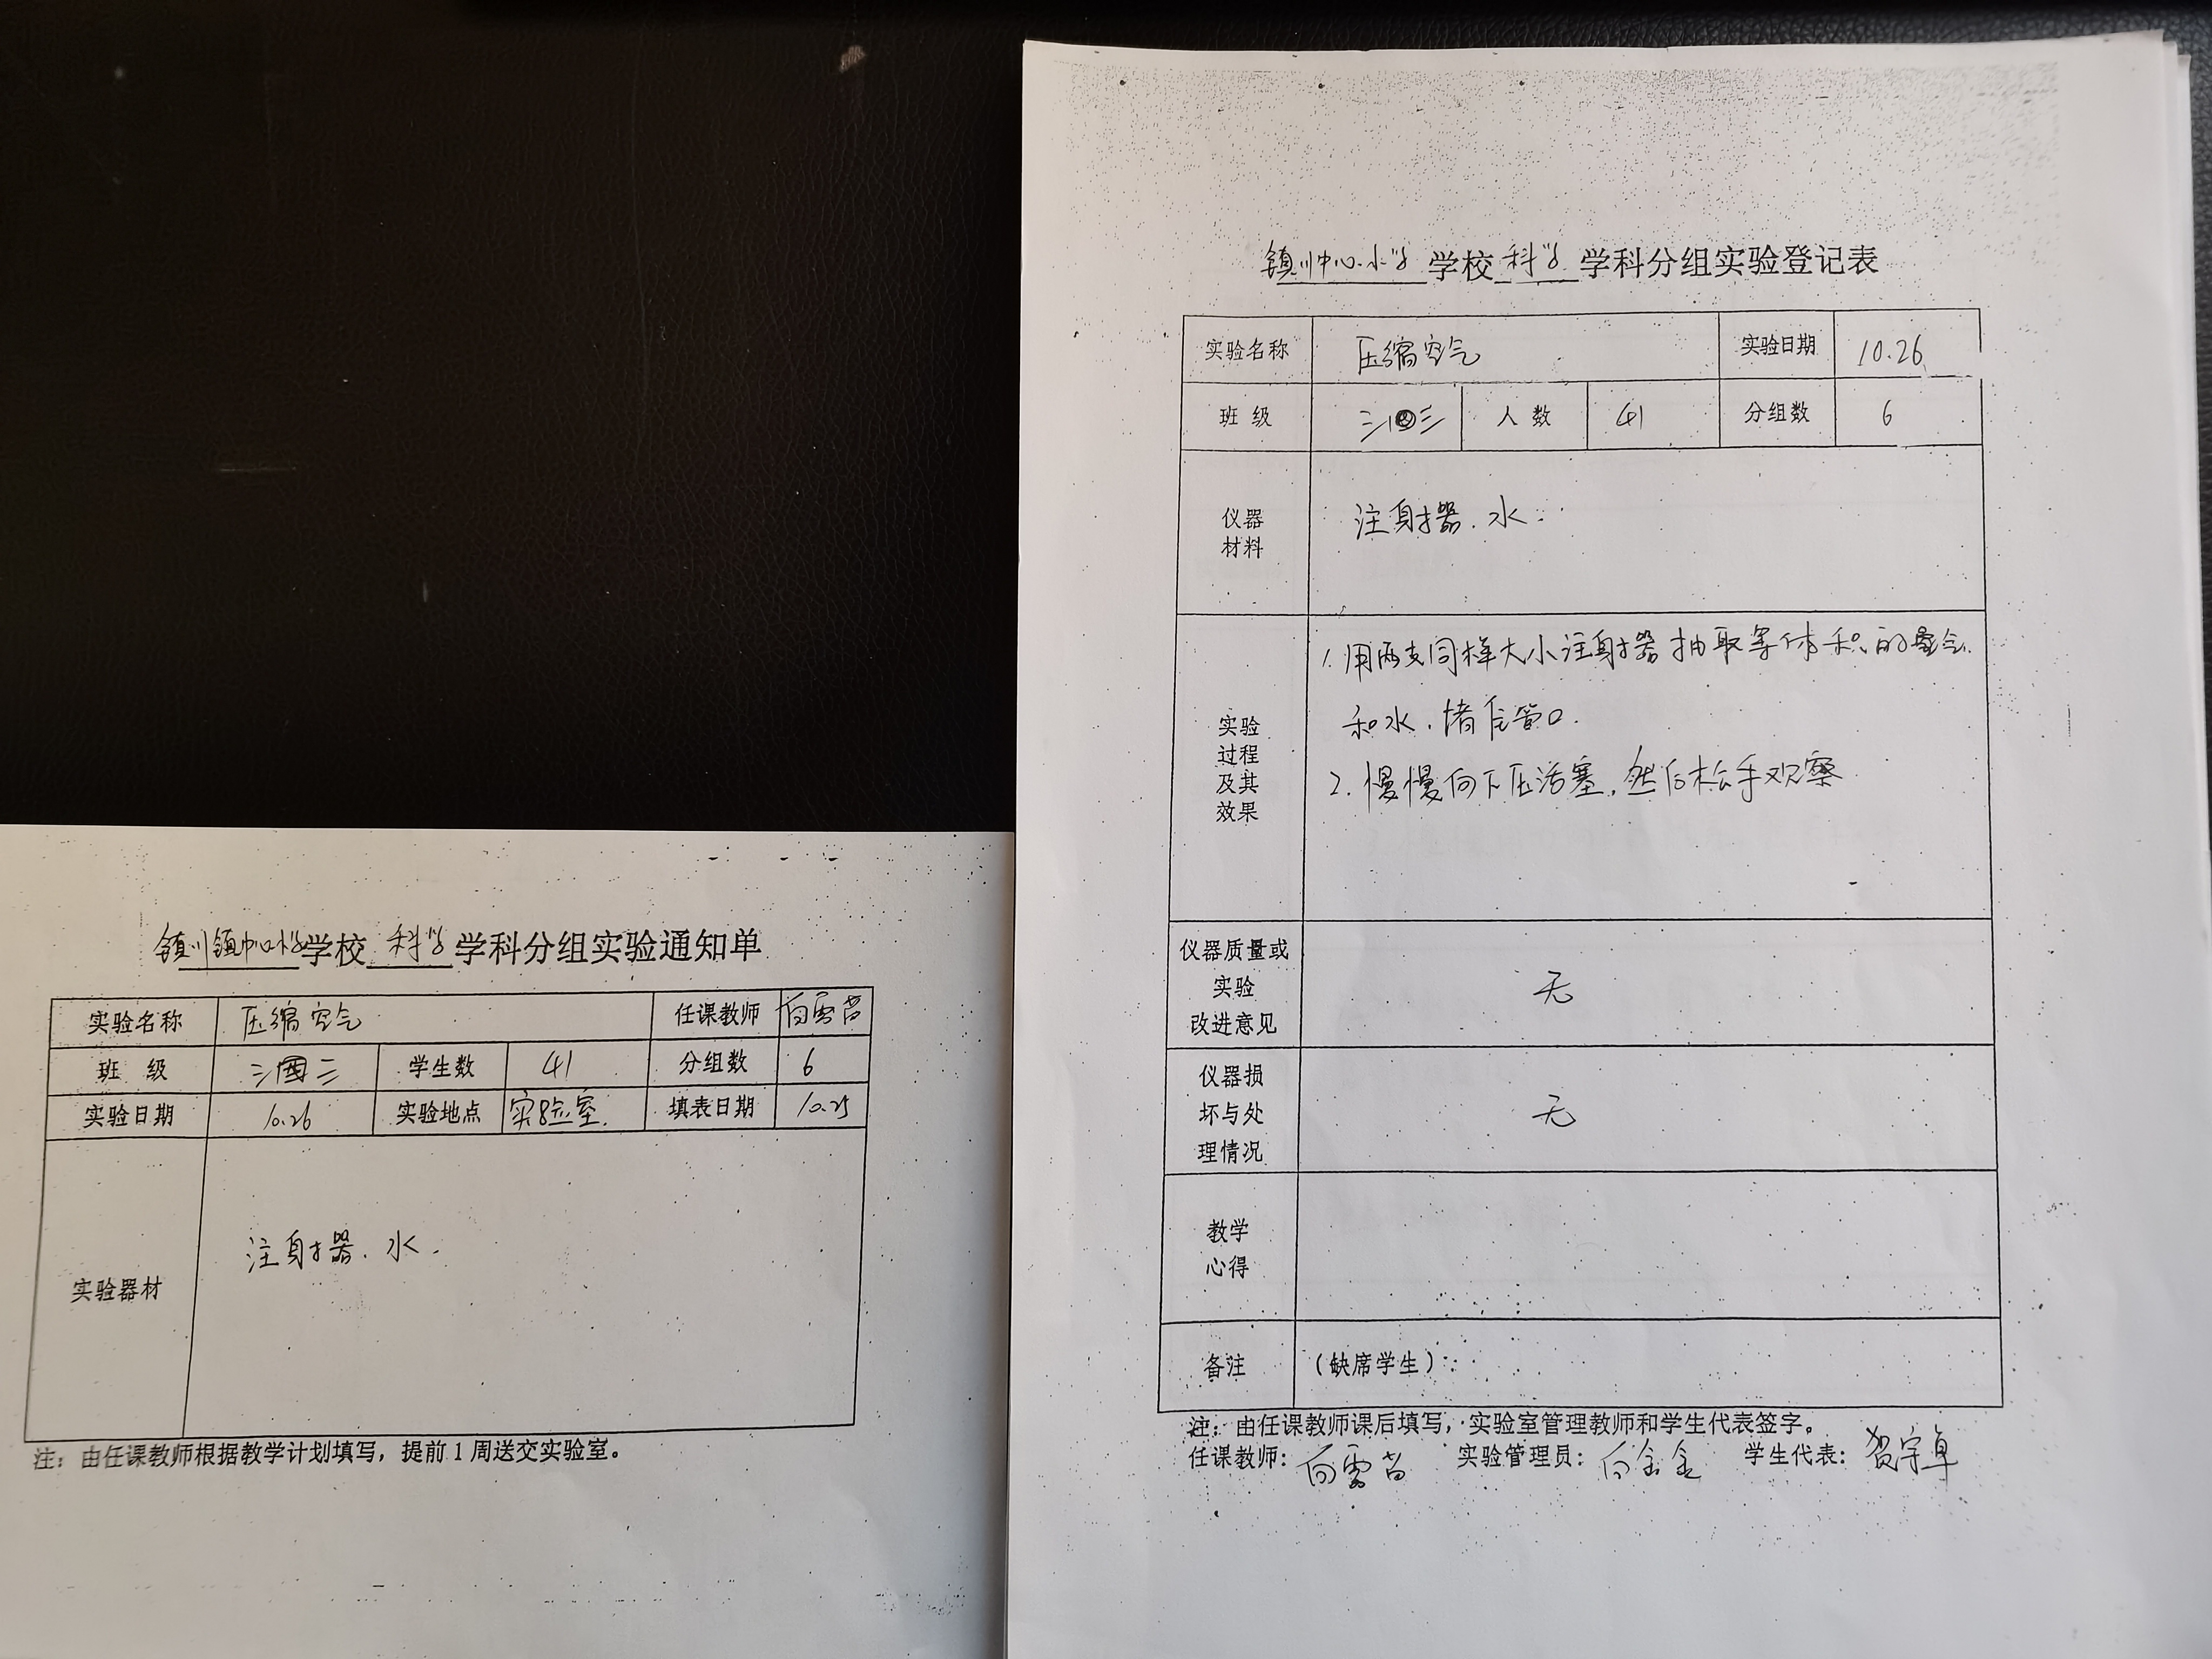 镇川镇中心小学学校 科学 学科分组实验通知单
实验名称 压缩空气 任课教师 向雪苗
班 级 三 三 学生数 41 分组数 6
实验日期 10.26 实验地点 实验室. 填表日期 10.25
实验器材 注射器.水.
注：由任课教师根据教学计划填写，提前1周送交实验室。
镇川中心小学 学校 科学 学科分组实验登记表
实验名称 压缩空气 实验日期 10.26
班 级 三 三 人 数 41 分组数 6
仪器
材料
注射器.水.
实验
过程
及其
效果
1.用两支同样大小注射器抽取等体积的空气
和水.堵住管口.
2.慢慢向下压活塞,然后松手观察
仪器质量或
实验
改进意见
无
仪器损
坏与处
理情况
无
教学
心得
备注 （缺席学生）：
注：由任课教师课后填写，实验室管理教师和学生代表签字。
任课教师：向雪苗 实验管理员：向金金 学生代表：贺宇卓